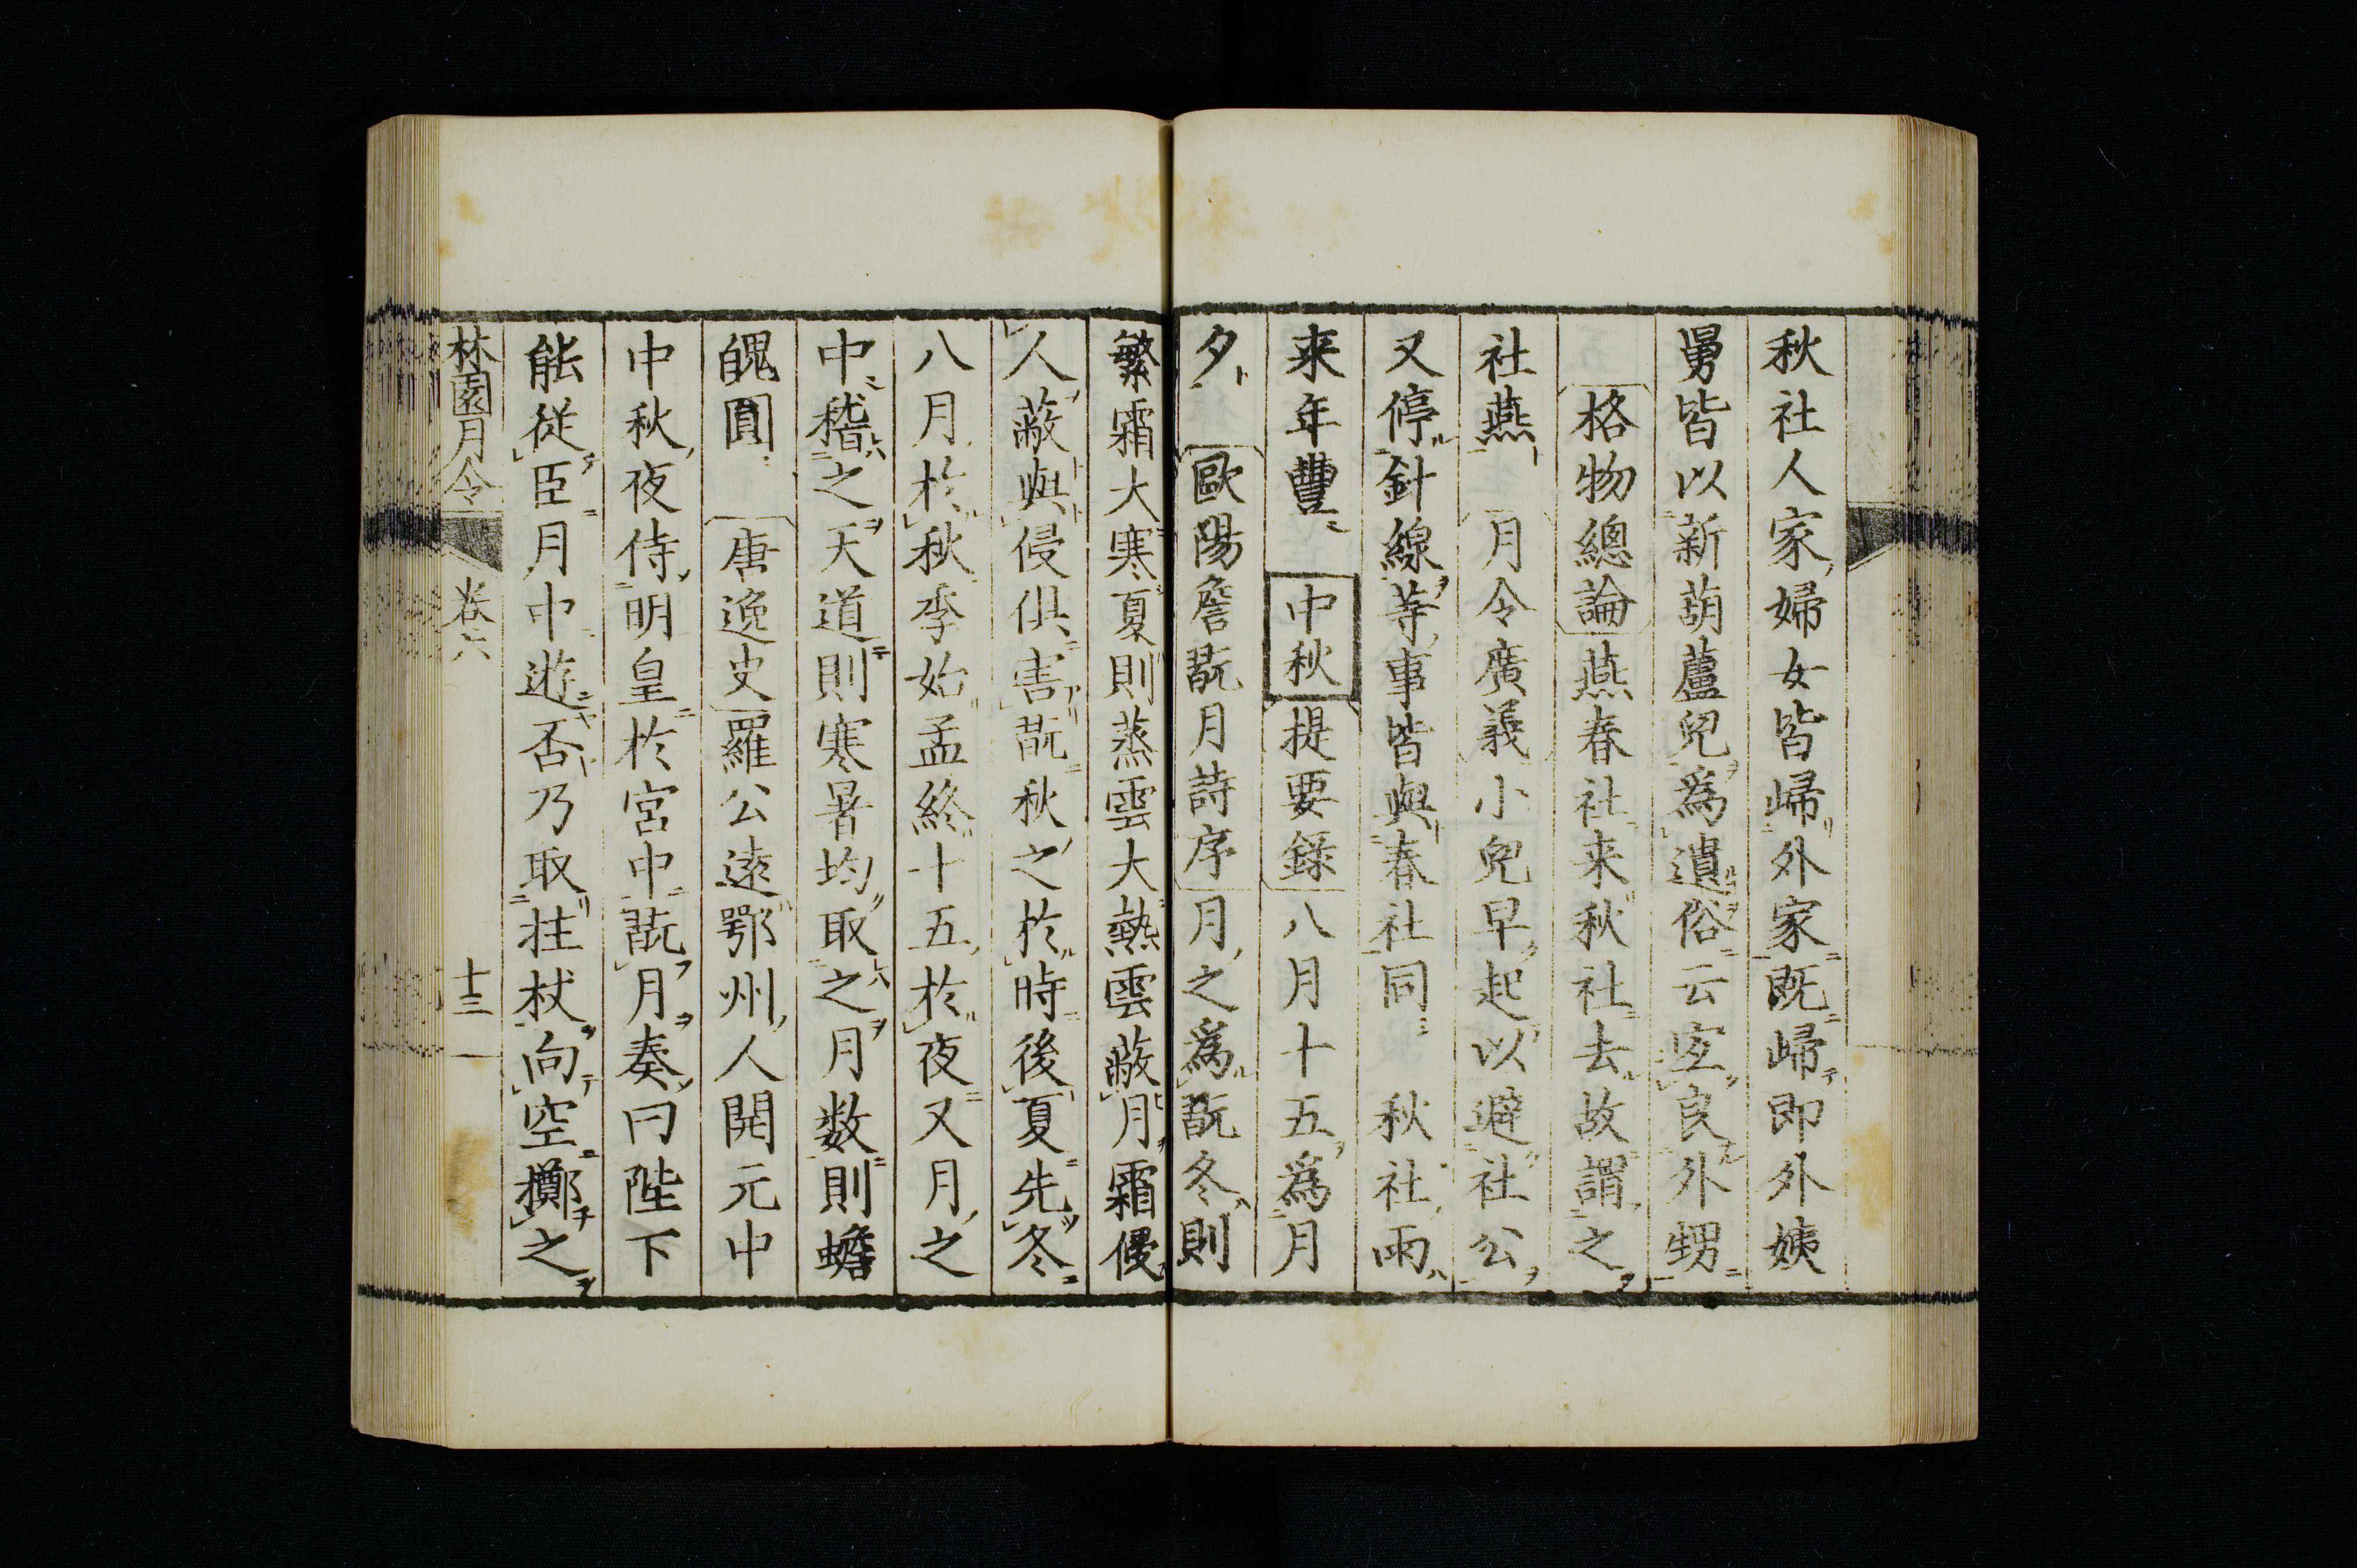 秋社人家婦女皆歸外家既歸即外姨
舅皆以新葫蘆兒爲遺俗云宜良外甥
格物總論燕春社来秋社去故謂之
社燕 月令廣義小兒早起以避社公
又停針線等事皆與春社同 秋社雨
来年豐 中秋 提要錄八月十五爲月
夕 歐陽詹翫月詩序月之爲翫冬則
繁霜大寒夏則蒸雲大熱雲蔽月霜侵
人蔽與侵俱害翫秋之於時後夏先冬
八月於秋季始孟終十五於夜又月之
中稽之天道則寒暑均取之月数則蟾
魄圓 唐逸史羅公遠鄂州人開元中
中秋夜侍明皇於宮中翫月奏曰陛下
能從臣月中遊否乃取拄杖向空擲之
林園月令 卷六 十三